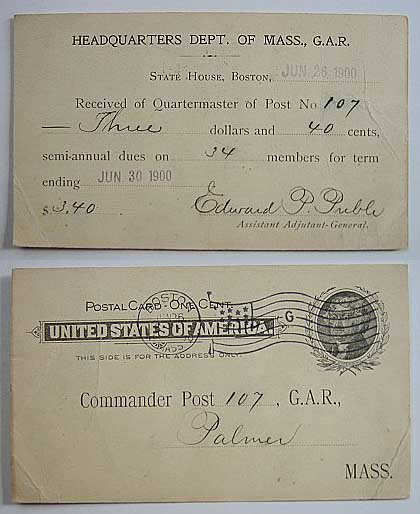 HEADQUARTERS DEPT. OF MASS., G.A.R.
STATE HOUSE, BOSTON, JUN 26 1900
Received of Quartermaster of Post No 107
— Three dollars and 40 cents,
semi-annual dues on 34 members for term
ending JUN 30 1900
$3.40 Edward P. Preble
Assistant Adjutant-General.
POSTAL CARD - ONE CENT.
UNITED STATES OF AMERICA.
THIS SIDE IS FOR THE ADDRESS ONLY.
BOSTON
G
Commander Post 107, G.A.R.,
Palmer
MASS.